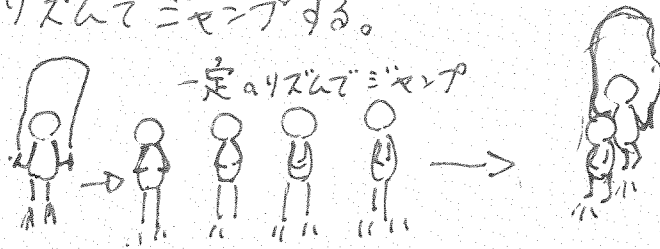 リズムでジャンプする。
一定のリズムでジャンプ